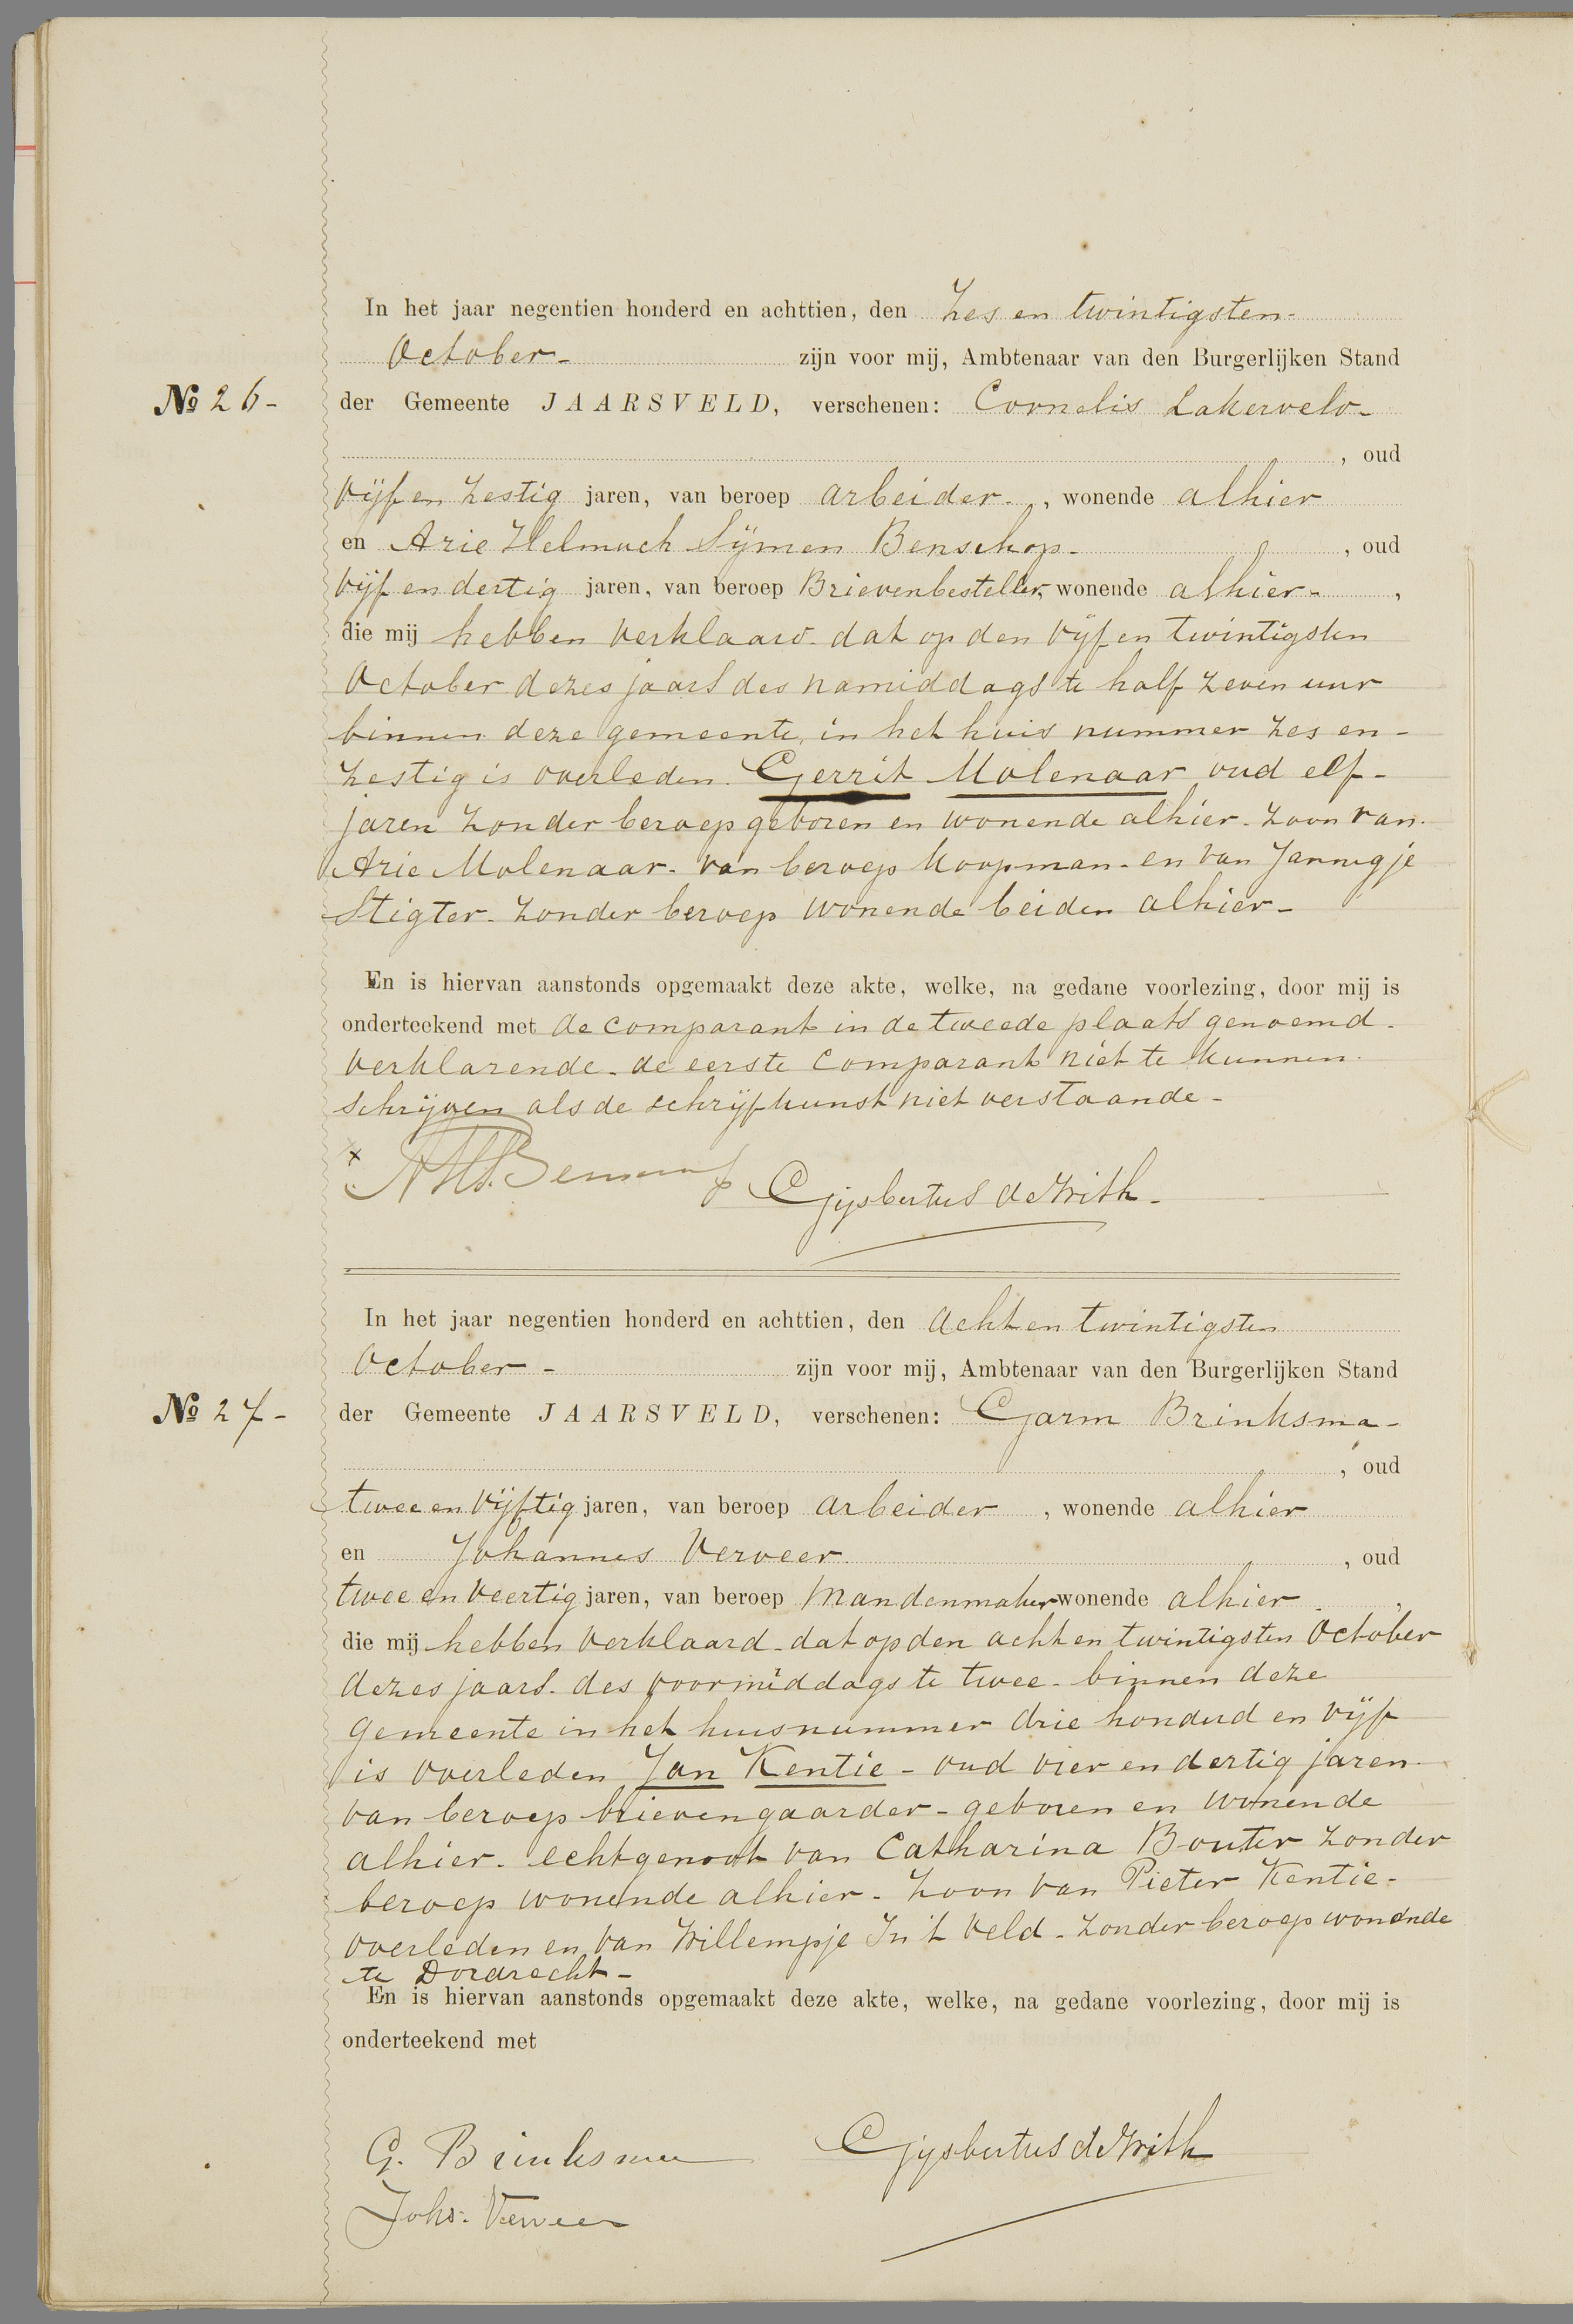 In het jaar negentien honderd en achttien, den Zes en twintigsten-
October- zijn voor mij, Ambtenaar van den Burgerlijken Stand
No 26- der Gemeente JAARSVELD, verschenen: Cornelis Lakerveld-
, oud
Vijf en Zestig jaren, van beroep arbeider-, wonende alhier
en Arie Helmuch Sijmen Benschop-, oud
Vijf en dertig jaren, van beroep Brievenbesteller, wonende alhier-,
die mij hebben Verklaard- dat op den Vijf en twintigsten
October dezes jaars des namiddags te half zeven uur
binnen deze gemeente, in het huis nummer Zes en-
Zestig is overleden. Gerrit Molenaar oud elf-
jaren Zonder beroep geboren en wonende alhier- Zoon van.
Arie Molenaar- van beroep Koopman- en van Jannigje
Stigter- Zonder beroep Wonende beiden alhier-
En is hiervan aanstonds opgemaakt deze akte, welke, na gedane voorlezing, door mij is
onderteekend met de comparant in de tweede plaats genoemd-
Verklarende- de eerste Comparant niet te kunnen
Schrijven als de schrijfkunst niet verstaande-
x AHS. Gijsbertus de With-
In het jaar negentien honderd en achttien, den Acht en twintigsten
October- zijn voor mij, Ambtenaar van den Burgerlijken Stand
No 27- der Gemeente JAARSVELD, verschenen: Garm Brinksma-
, oud
twee en Vijftig jaren, van beroep arbeider, wonende alhier
en Johannes Verveer, oud
twee en Veertig jaren, van beroep Mandenmaker wonende alhier-,
die mij hebben Verklaard- dat op den acht en twintigsten October
dezes jaars- des voormiddags te twee- binnen deze
Gemeente in het huisnummer drie honderd en Vijf
is overleden Jan Kentie- oud vier en dertig jaren-
van beroep brievengaarder- geboren en wonende
alhier- echtgenoot van Catharina Bouter Zonder
beroep wonende alhier- Zoon van Pieter Kentie-
overleden en van Willempje In 't Veld- Zonder beroep wonende
te Dordrecht-
En is hiervan aanstonds opgemaakt deze akte, welke, na gedane voorlezing, door mij is
onderteekend met
G. Brinksma Gijsbertus de With
Johs. Verveer